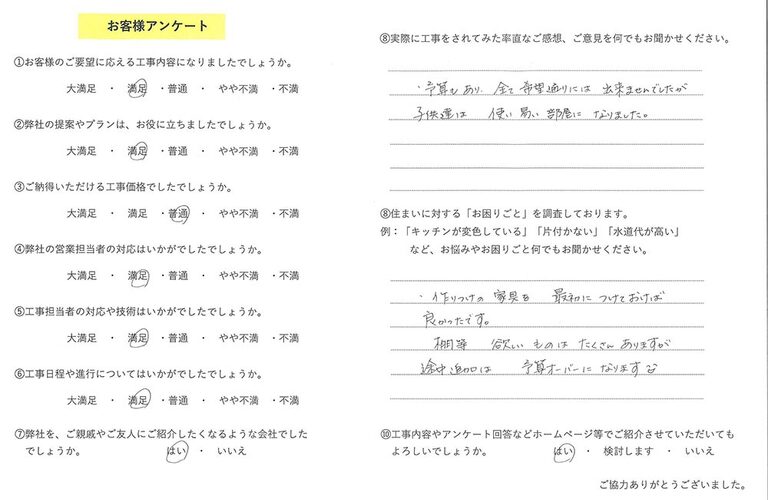 お客様アンケート
①お客様のご要望に応える工事内容になりましたでしょうか。
大満足 ・ 満足 ・普通 ・ やや不満 ・不満
②弊社の提案やプランは、お役に立ちましたでしょうか。
大満足 ・ 満足 ・普通 ・ やや不満 ・不満
③ご納得いただける工事価格でしたでしょうか。
大満足 ・ 満足 ・普通 ・ やや不満 ・不満
④弊社の営業担当者の対応はいかがでしたでしょうか。
大満足 ・ 満足 ・普通 ・ やや不満 ・不満
⑤工事担当者の対応や技術はいかがでしたでしょうか。
大満足 ・ 満足 ・普通 ・ やや不満 ・不満
⑥工事日程や進行についてはいかがでしたでしょうか。
大満足 ・ 満足 ・普通 ・ やや不満 ・不満
⑦弊社を、ご親戚やご友人にご紹介したくなるような会社でした
でしょうか。 はい ・ いいえ
⑧実際に工事をされてみた率直なご感想、ご意見を何でもお聞かせください。
・予算もあり、全て希望通りには出来ませんでしたが
子供達は 使い易い部屋に なりました。
⑧住まいに対する「お困りごと」を調査しております。
例：「キッチンが変色している」「片付かない」「水道代が高い」
など、お悩みやお困りごと何でもお聞かせください。
・作りつけの家具を 最初につけておけば
良かったです。
棚等 欲しいものは たくさんありますが
途中追加は 予算オーバーになります
⑩工事内容やアンケート回答などホームページ等でご紹介させていただいても
よろしいでしょうか。 はい ・ 検討します ・ いいえ
ご協力ありがとうございました。